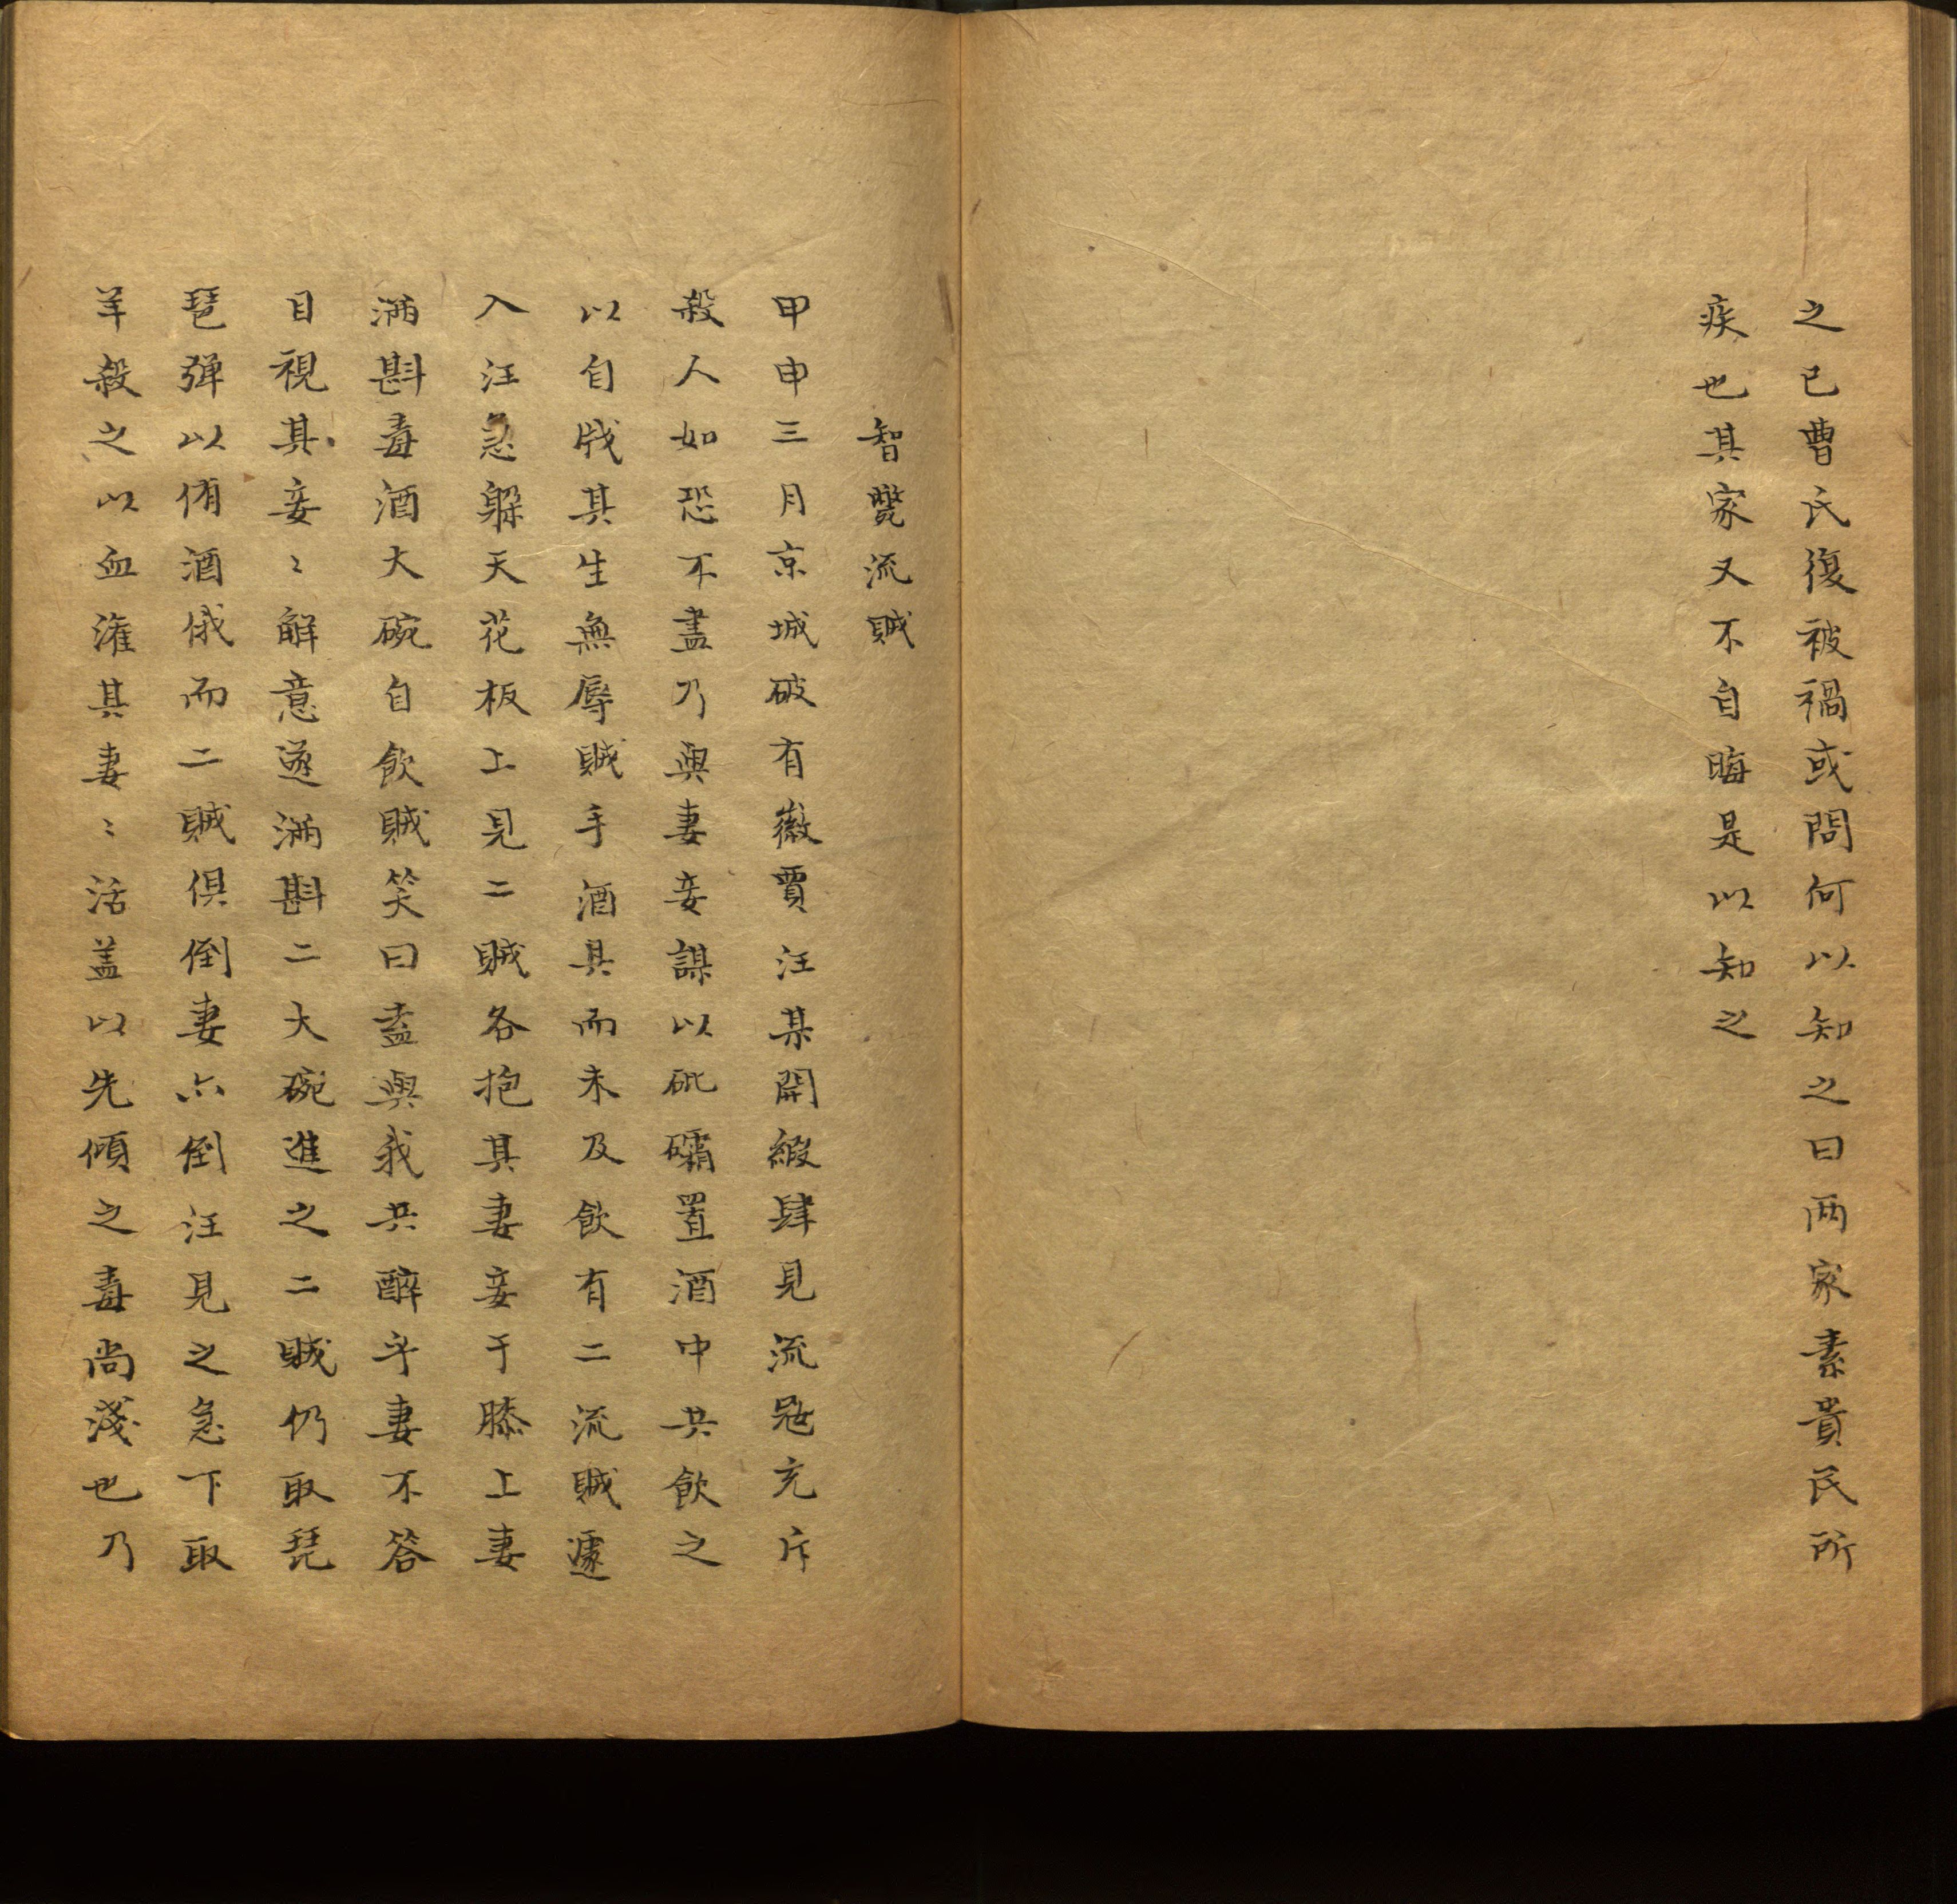 之已曹氏復被禍或問何以知之曰两家素貴民所
疾也其家又不自晦是以知之
智斃流賊
甲申三月京城破有徽賈汪某開緞肆見流冦充斥
殺人如恐不盡乃與妻妾謀以砒礵置酒中共飲之
以自戕其生無辱賊手酒具而未及飲有二流賊遽
入汪急躲天花板上見二賊各抱其妻妾于膝上妻
滿斟毒酒大碗自飲賊笑曰盍與我共醉乎妻不答
目視其妾〻解意遂滿斟二大碗進之二賊仍取琵
琶弹以侑酒俄而二賊俱倒妻亦倒汪見之急下取
羊殺之以血灌其妻〻活盖以先傾之毒尚淺也乃